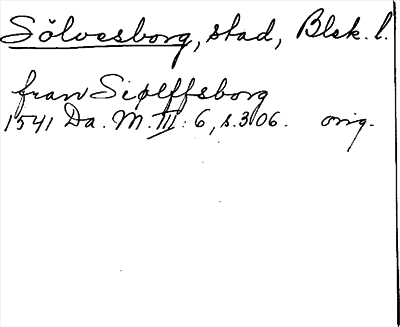 Sölvesborg, stad, Blek. l.
fran Siølffsborg
1541 Da. M. III: 6, s. 306. orig.